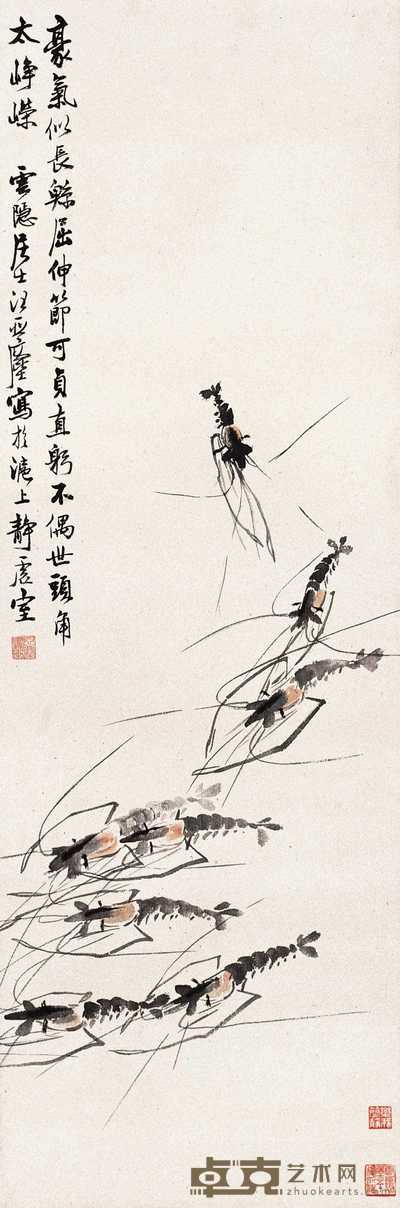 豪氣似長鯨屈伸節可貞直躬不偶世頭角
太崢嶸 雲隱居士汪亞塵寫於滬上靜虛室
卓克艺术网
www.zhuokearts.com